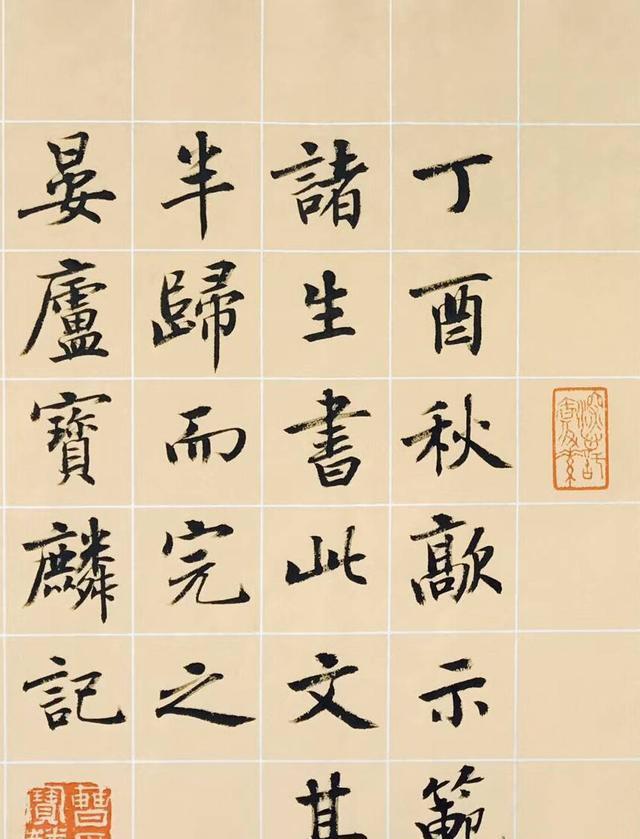 丁酉秋歊示範
諸生書此文其
半歸而完之
晏廬寶麟記
曹
寶